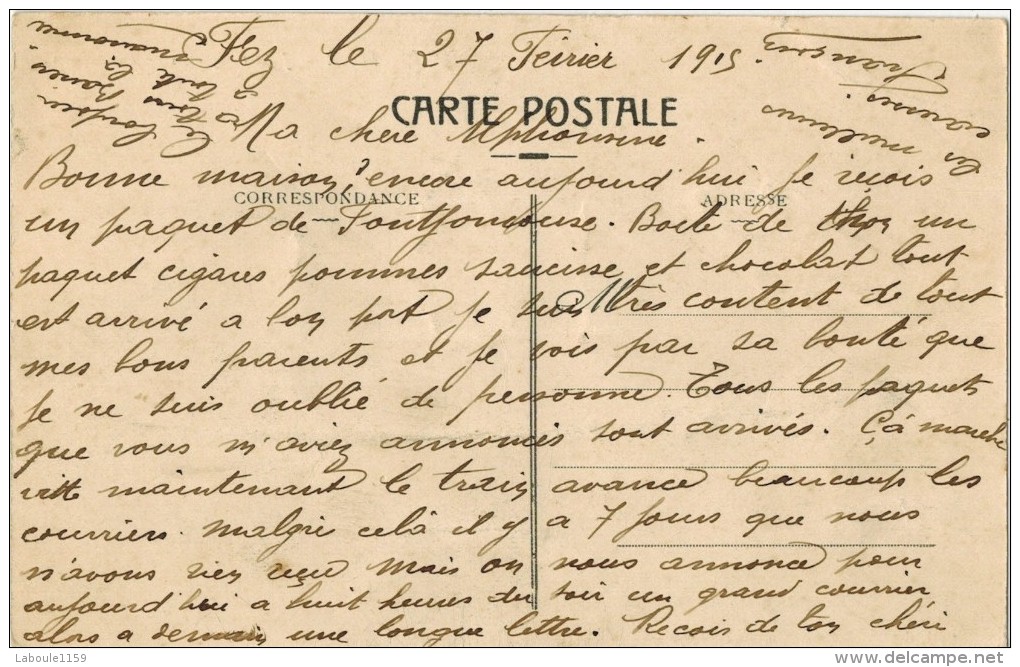 Fez le 27 Féirier 1915.
CARTE POSTALE
Ma chère Alphonsine.
Bonne maison, encore aujourd hui Je reçois
CORRESPONDANCE
ADRESSE
un paquet de Fontfomouse. Boite de thon un
paquet cigares pommes saucisse et chocolat tout
est arrivé a bon port Je suis très content de tout
mes bons parents et Je vois par sa bonté que
Je ne suis oublié de personne. Tous les paquets
que vous m'aviez annoncés sont arrivés. Çà marche
vitte maintenant le train avance beaucoup les
courriers. Malgré celà il y a 7 Jours que nous
n'avons rien reçu Mais on nous annonce pour
aujourd hui a huit heures du soir un grand courrier
alors a demain une longue lettre. Recois de ton chéri
les meilleurs
caresses
François
le bonjour
a tous Bancis
a toute la
maisonnée
Laboule1159
delcampe.net